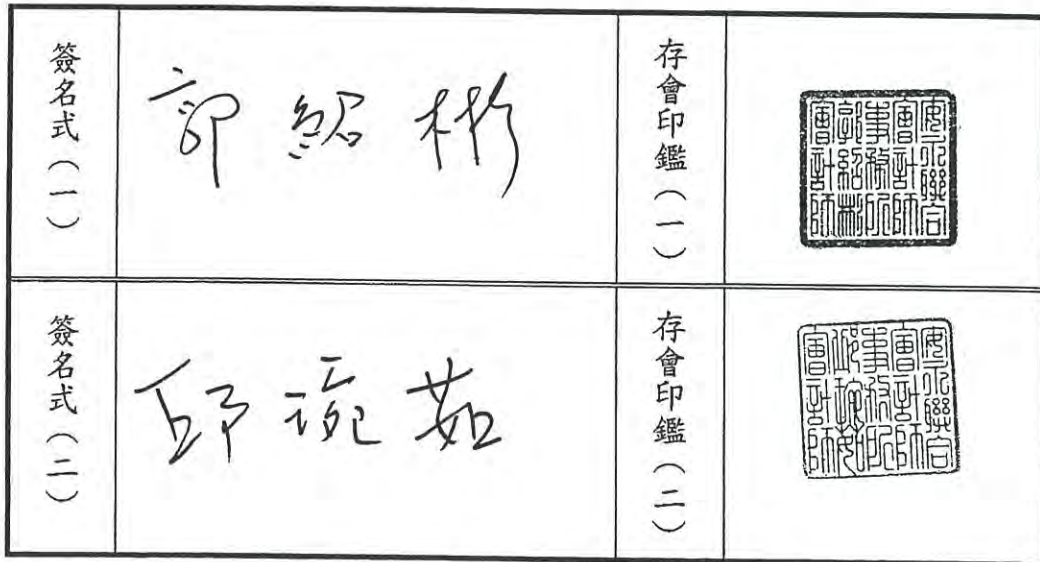 簽名式(一)
郭紹彬
存會印鑑(一)
安永聯合
會計師
事務所
郭紹彬
會計師
簽名式(二)
邱琬茹
存會印鑑(二)
安永聯合
會計師
事務所
邱琬茹
會計師